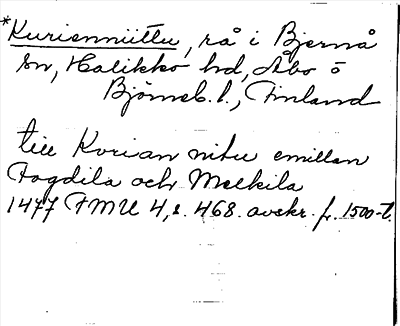 *Kurienniittu, rå i Bjernå
sn, Halikko hd, Åbo o
Björneb. l., Finland
till Kurian nitu emillan
Fogdila och Melkila
1477 FMU 4, s. 468. avskr. fr. 1500-t.